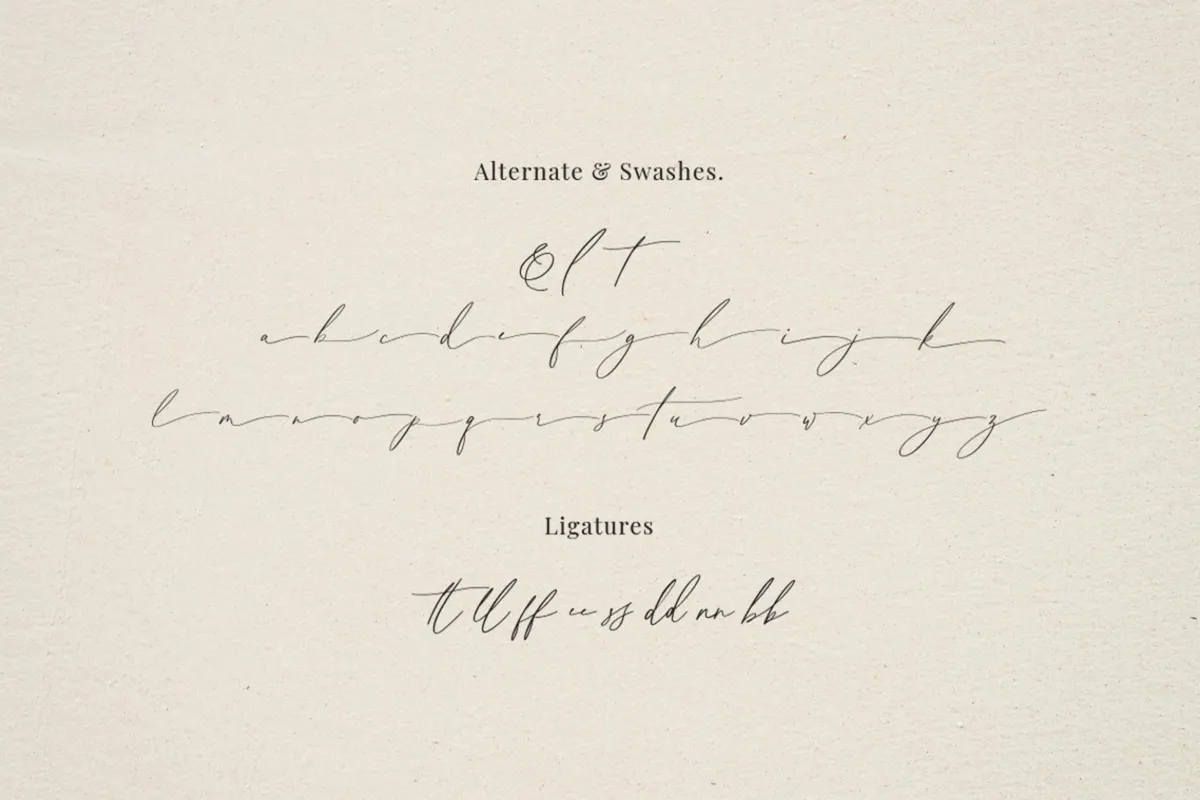 Alternate & Swashes.
l T
a b c d e f g h i j k
l m n o p q r s t u v w x y z
Ligatures
tt ll ff ee ss dd nn bb